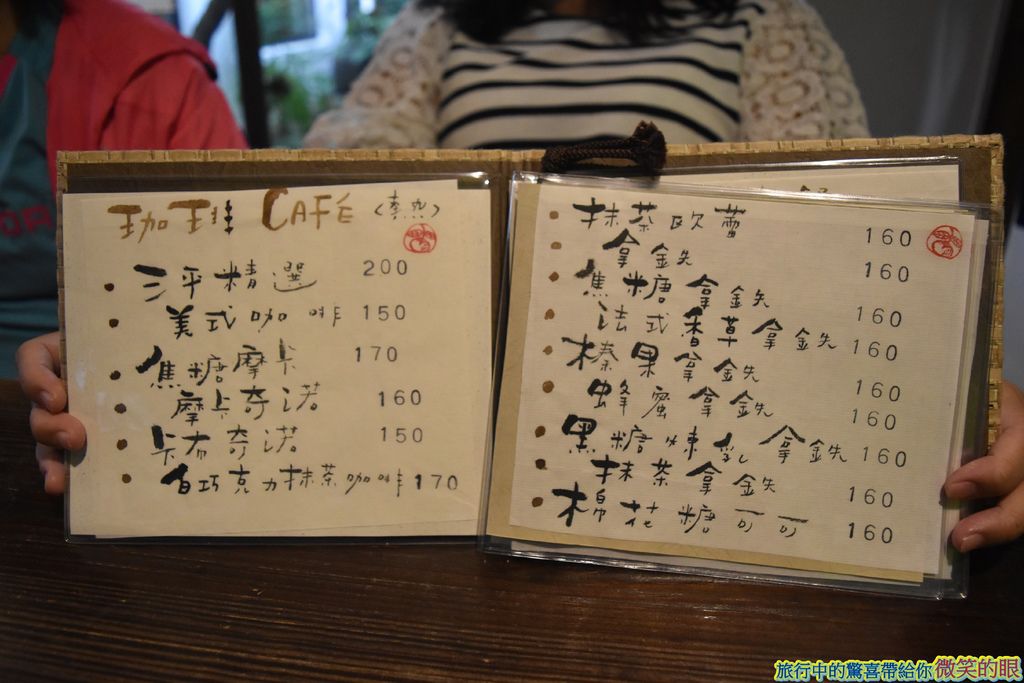 珈琲 CAFÉ (季熱)
三平精選 200
美式咖啡 150
焦糖摩卡 170
摩卡奇諾 160
卡布奇諾 150
白巧克力抹茶咖啡 170
抹茶欧蕾 160
拿鉄 160
焦糖拿鉄 160
法式香草拿鉄 160
榛果拿鉄 160
蜂蜜拿鉄 160
黑糖煉乳拿鉄 160
抹茶拿鉄 160
棉花糖可可 160
旅行中的驚喜帶給你微笑的眼